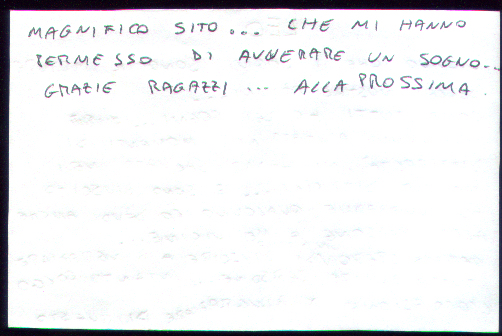 MAGNIFICO SITO... CHE MI HANNO
PERMESSO DI AVVERARE UN SOGNO...
GRAZIE RAGAZZI... ALLA PROSSIMA